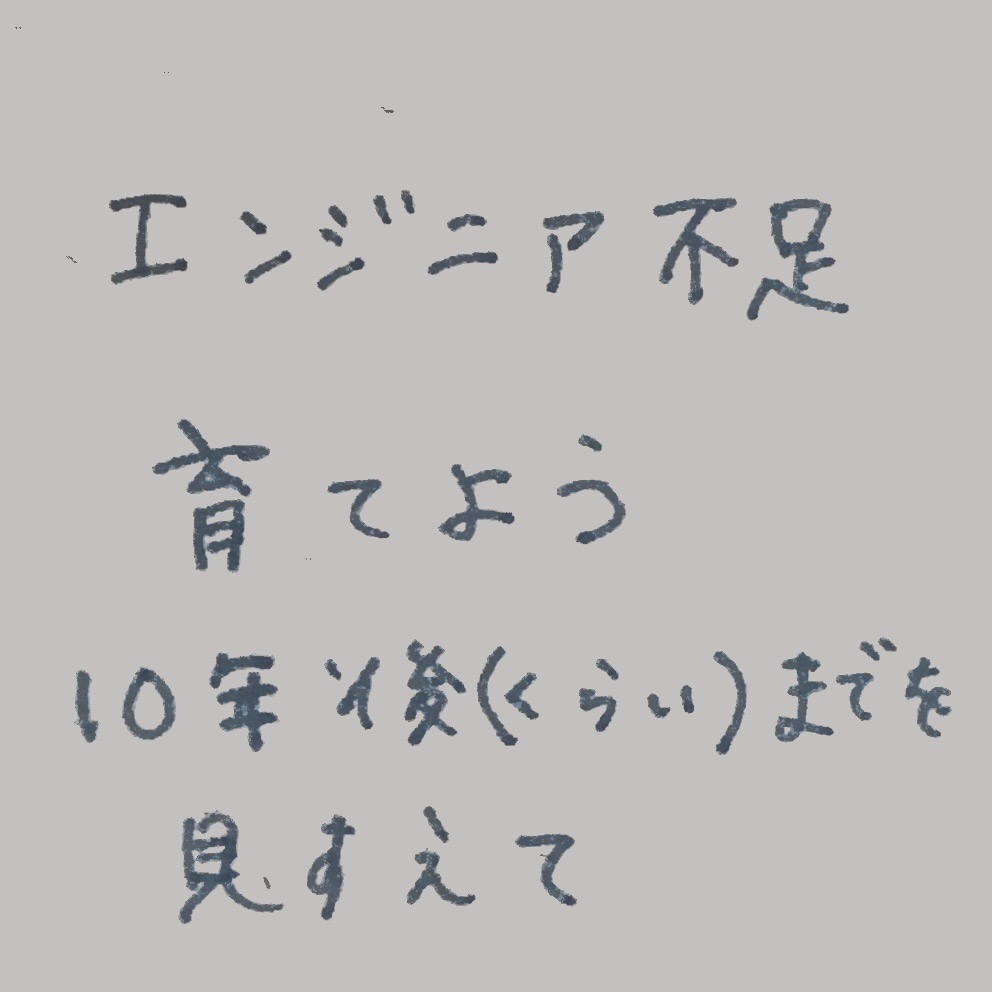 エンジニア不足
育てよう
10年以後(くらい)までを
見すえて